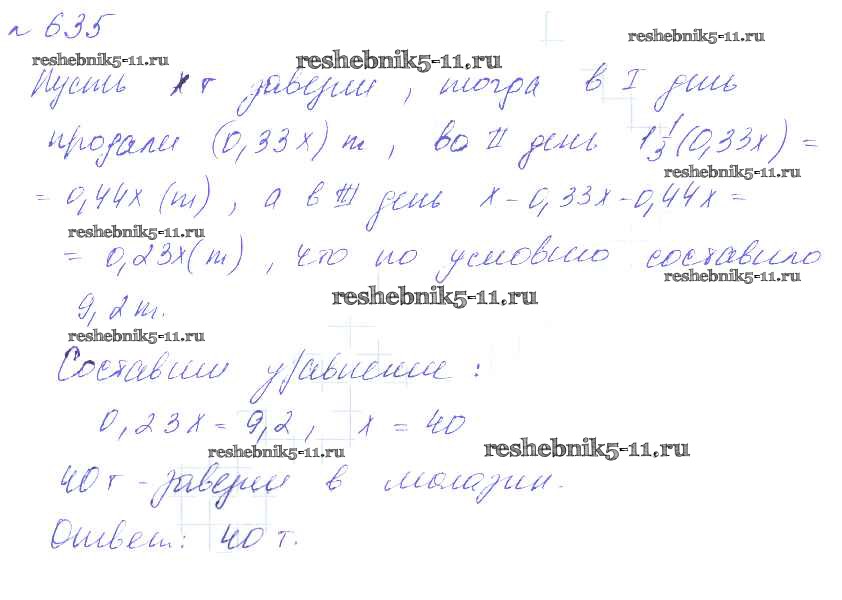 № 635
reshebnik5-11.ru reshebnik5-11.ru reshebnik5-11.ru
Пусть x т завезли, тогда в I день
продали (0,33x) т, во II день 1 1/3 (0,33x) =
reshebnik5-11.ru
= 0,44x (т), а в III день x - 0,33x - 0,44x =
reshebnik5-11.ru
= 0,23x (т), что по условию составило
reshebnik5-11.ru
reshebnik5-11.ru
9,2 т.
reshebnik5-11.ru
Составим уравнение:
0,23x = 9,2, x = 40
reshebnik5-11.ru reshebnik5-11.ru
40 т - завезли в магазин.
Ответ: 40 т.